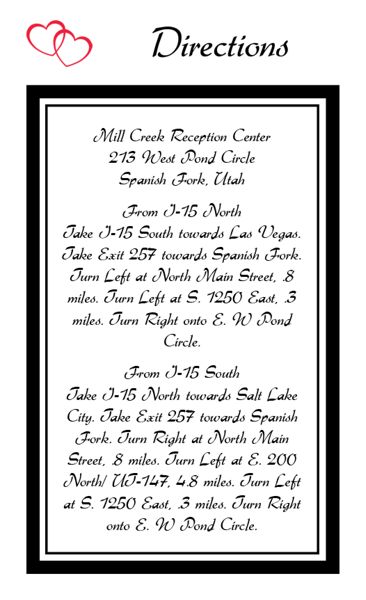 Directions
Mill Creek Reception Center
213 West Pond Circle
Spanish Fork, Utah
From I-15 North
Take I-15 South towards Las Vegas.
Take Exit 257 towards Spanish Fork.
Turn Left at North Main Street, .8
miles. Turn Left at S. 1250 East, .3
miles. Turn Right onto E. W Pond
Circle.
From I-15 South
Take I-15 North towards Salt Lake
City. Take Exit 257 towards Spanish
Fork. Turn Right at North Main
Street, .8 miles. Turn Left at E. 200
North/ UT-147, 4.8 miles. Turn Left
at S. 1250 East, .3 miles. Turn Right
onto E. W Pond Circle.